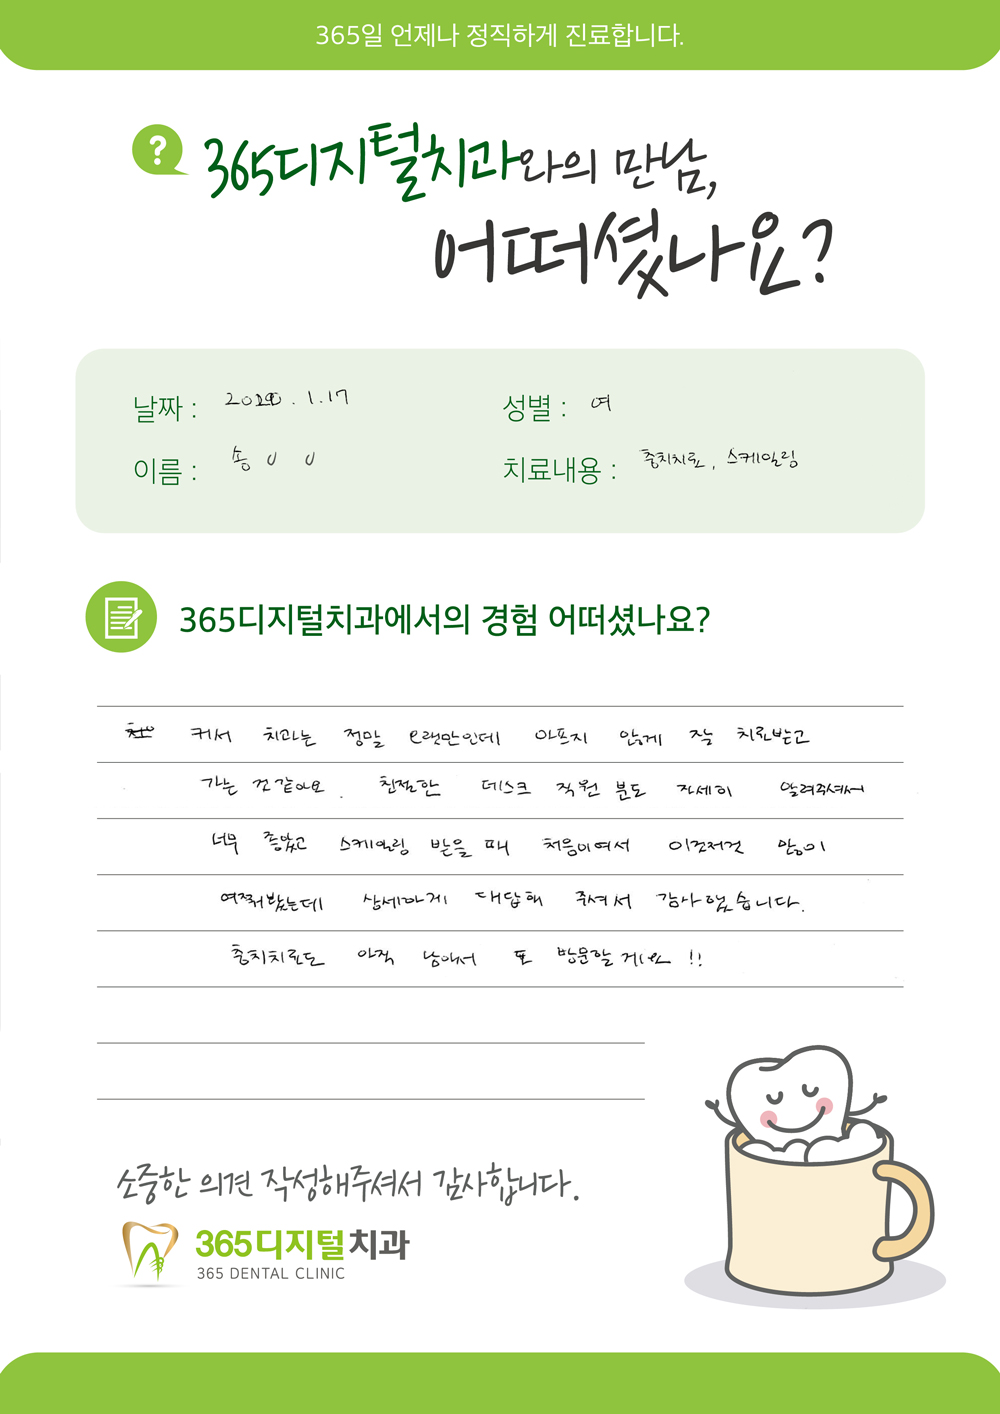 365일 언제나 정직하게 진료합니다.
365디지털치과와의 만남,
어떠셨나요?
날짜 : 2020.1.17
성별 : 여
이름 : 송 0 0
치료내용 : 충치치료, 스케일링
365디지털치과에서의 경험 어떠셨나요?
커서 치과는 정말 오랫만인데 아프지 않게 잘 치료받고
가는 것 같아요. 친절한 데스크 직원 분도 자세히 알려주셔서
너무 좋았고 스케일링 받을 때 처음이여서 이것저것 많이
여쭤봤는데 상세하게 대답해 주셔서 감사했습니다.
충치치료도 아직 남아서 또 방문할게요!!
소중한 의견 작성해주셔서 감사합니다.
365디지털치과
365 DENTAL CLINIC